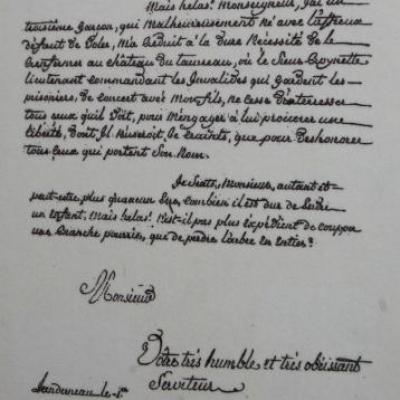 Mais helas! Monseigneur, j'ai un
troisième garçon, qui malheureusement né avec l'affreux
défaut de voler, m'a reduit à la dure nécessité de le
renfermer au château du taureau, où le Sieur
lieutenant commandant les Invalides qui gardent les
prisoniers, de concert avec mon fils, ne cesse d'interesser
tous ceux qu'il voit, pour ménager à lui procurer une
liberté, dont il useroit, je crains, que pour deshonorer
tous ceux qui portent son nom.
Je sens, Monsieur, autant et
peut-etre plus qu'aucun pere, combien il est dur de
un enfant, mais helas! n'est-il pas plus expédient de couper
une branche pourrie, que de perdre l'arbre en entier?
Monsieur
Votre très humble et très obeissant
Serviteur
Landerneau le